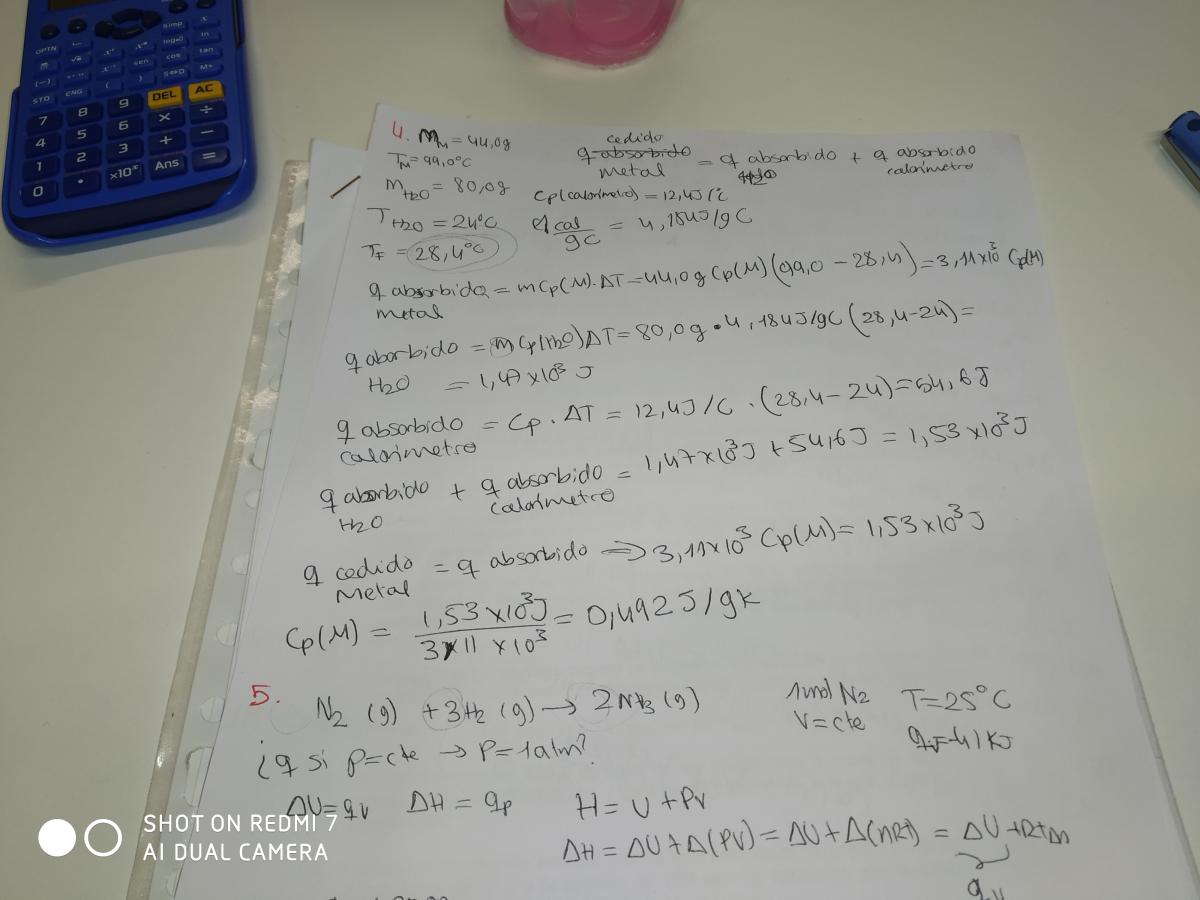 OPTN
Simp
x
log
ln
sen
cos
tan
(−)
(
)
S⇔D
M+
STO
ENG
7
8
9
DEL
AC
4
5
6
×
÷
1
2
3
+
−
0
•
×10ˣ
Ans
=
4. M_M = 44,0g
T_M = 99,0°C
m_H2O = 80,0g
T_H2O = 24°C
T_F = 28,4°C
cedido
q absorbido metal = q absorbido H2O + q absorbido calorímetro
Cp (calorímetro) = 12,4J/C
q cal/gC = 4,184J/gC
q absorbido metal = m Cp(M)·ΔT = 44,0g Cp(M)(99,0 − 28,4) = 3,11×10³ Cp(M)
q aborbido H2O = m Cp(H2O) ΔT = 80,0g • 4,184J/gC (28,4-24) =
= 1,47×10³ J
q absorbido calorímetro = Cp · ΔT = 12,4J/C · (28,4 − 24) = 54,6J
q absorbido H2O + q absorbido calorímetro = 1,47×10³J + 54,6J = 1,53×10³J
q cedido metal = q absorbido ⇒ 3,11×10³ Cp(M) = 1,53×10³J
Cp(M) = 1,53×10³J / 3,11×10³ = 0,492J/gK
5. N2 (g) + 3H2 (g) → 2NH3 (g)
1mol N2
T=25°C
V=cte
qv=-41KJ
¿q si p=cte → P=1atm?
ΔU=qv ΔH = qp H = U + PV
ΔH = ΔU + Δ(PV) = ΔU + Δ(nRt) = ΔU + RtΔn
qv
SHOT ON REDMI 7
AI DUAL CAMERA